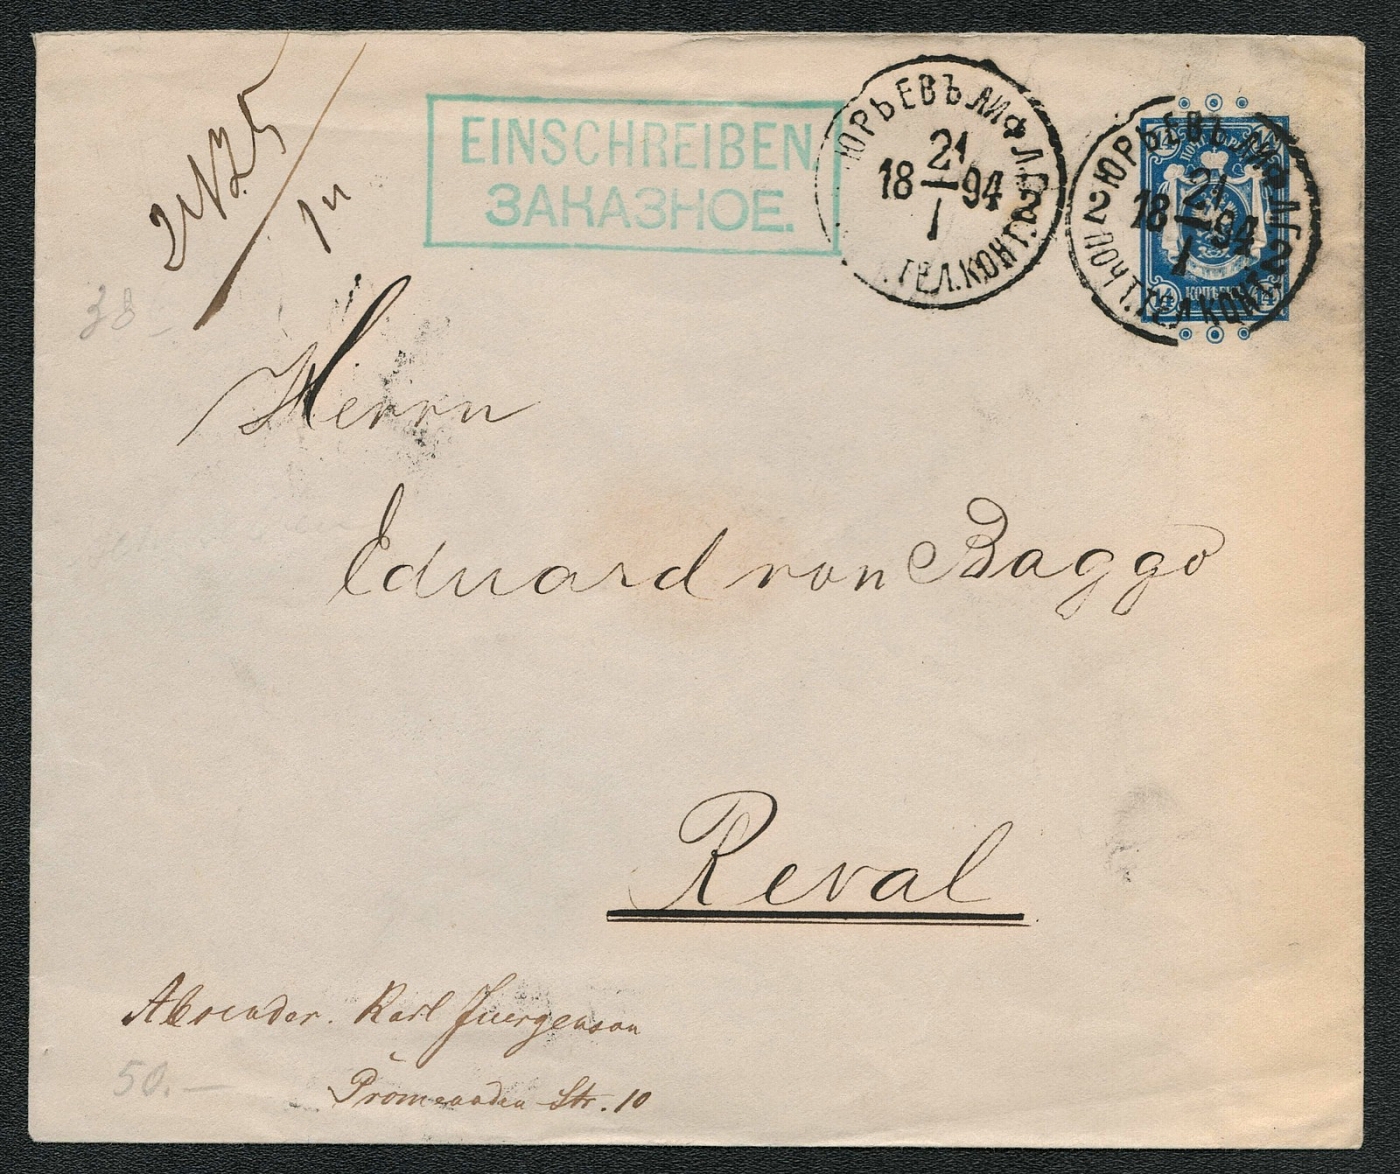 EINSCHREIBEN.
ЗАКАЗНОЕ.
ЮРЬЕВЪ ЛИФЛ. Г. 2
21
18 — 94
I
ТЕЛ. КОНТ.
ЮРЬЕВЪ ЛИФЛ. Г. 2
21
18 — 94
I
ПОЧТ. ТЕЛ. КОНТ. 2
14 14
КОПѢЕКЪ
14 14
38 —
Herrn
Eduard von Baggo
Reval
Absender. Karl Juergenson
Promenaden Str. 10
50. —